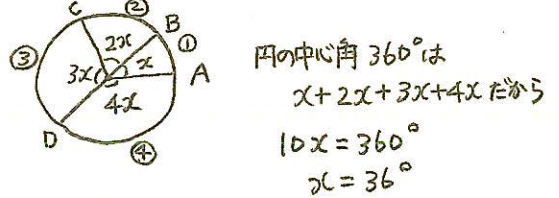 C
②
B
①
2x
x
A
③
3x
4x
D
④
円の中心角 360°は
x+2x+3x+4xだから
10x=360°
x=36°